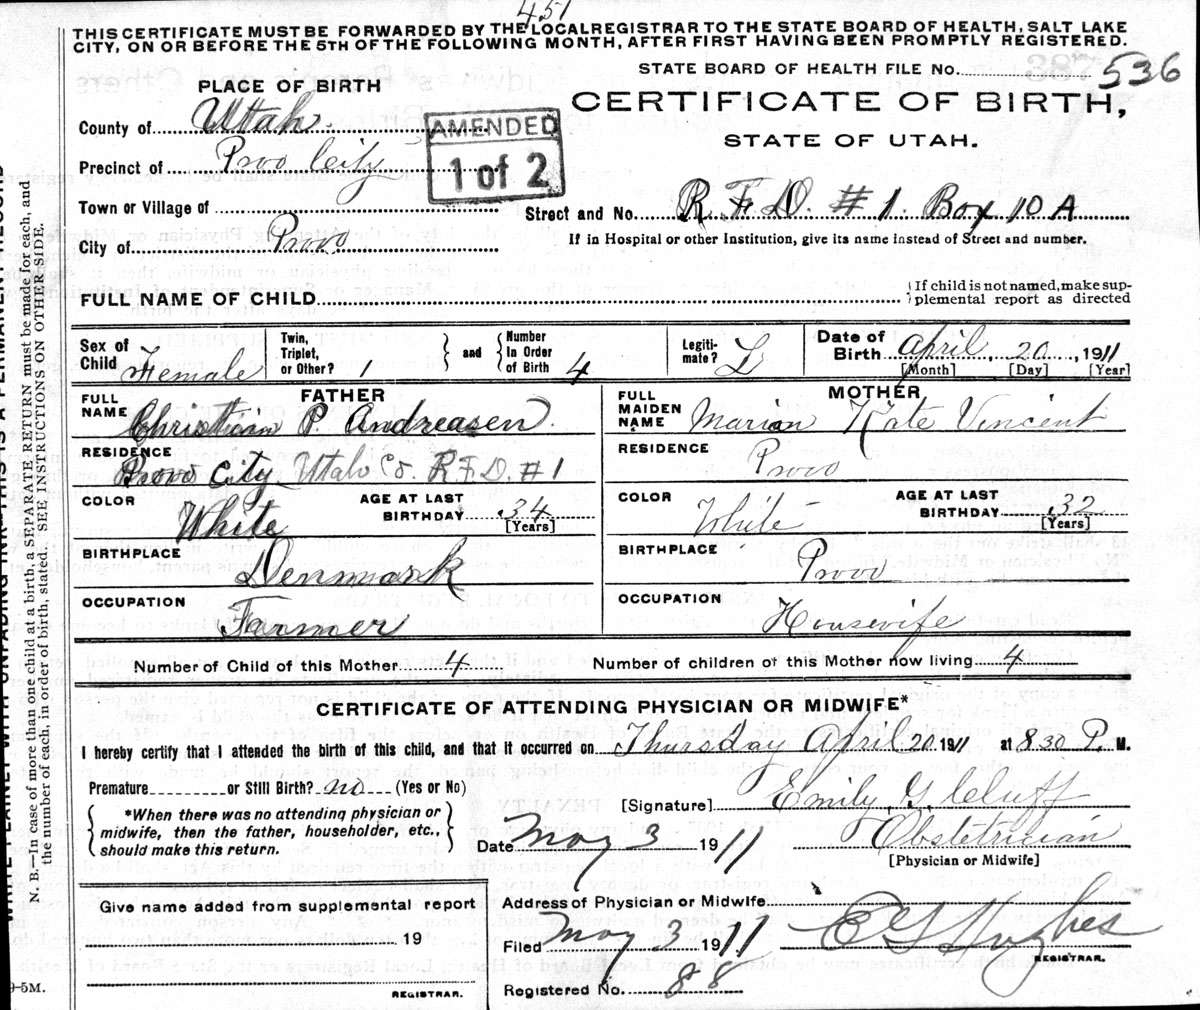 451
THIS CERTIFICATE MUST BE FORWARDED BY THE LOCAL REGISTRAR TO THE STATE BOARD OF HEALTH, SALT LAKE
CITY, ON OR BEFORE THE 5TH OF THE FOLLOWING MONTH, AFTER FIRST HAVING BEEN PROMPTLY REGISTERED.
STATE BOARD OF HEALTH FILE No. 536
PLACE OF BIRTH
CERTIFICATE OF BIRTH,
STATE OF UTAH.
County of Utah
AMENDED
1 of 2
Precinct of Provo City
Town or Village of
Street and No. R. F. D. #1. Box 10 A
City of Provo
If in Hospital or other Institution, give its name instead of Street and number.
FULL NAME OF CHILD
If child is not named, make sup-
plemental report as directed
Sex of Child Female
Twin, Triplet, or Other? 1
and
Number In Order of Birth 4
Legiti-mate? L
Date of Birth April 20, 1911
[Month] [Day] [Year]
FATHER
FULL NAME Christian P. Andreasen
RESIDENCE Provo City, Utah Co. R.F.D. #1
COLOR White
AGE AT LAST BIRTHDAY 34
[Years]
BIRTHPLACE Denmark
OCCUPATION Farmer
MOTHER
FULL MAIDEN NAME Marion Kate Vincent
RESIDENCE Provo
COLOR White
AGE AT LAST BIRTHDAY 32
[Years]
BIRTHPLACE Provo
OCCUPATION Housewife
Number of Child of this Mother 4 Number of children of this Mother now living 4
CERTIFICATE OF ATTENDING PHYSICIAN OR MIDWIFE*
I hereby certify that I attended the birth of this child, and that it occurred on Thursday April 20 1911 at 8.30 P. M.
Premature or Still Birth? no (Yes or No)
*When there was no attending physician or
midwife, then the father, householder, etc.,
should make this return.
[Signature] Emily G. Cluff
Date May 3 1911
Obstetrician
[Physician or Midwife]
Give name added from supplemental report
19
REGISTRAR.
Address of Physician or Midwife
Filed May 3 1911
E G Hughes
REGISTRAR.
Registered No. 88
9-5M.
N. B.—In case of more than one child at a birth, a SEPARATE RETURN must be made for each, and
the number of each, in order of birth, stated. SEE INSTRUCTIONS ON OTHER SIDE.